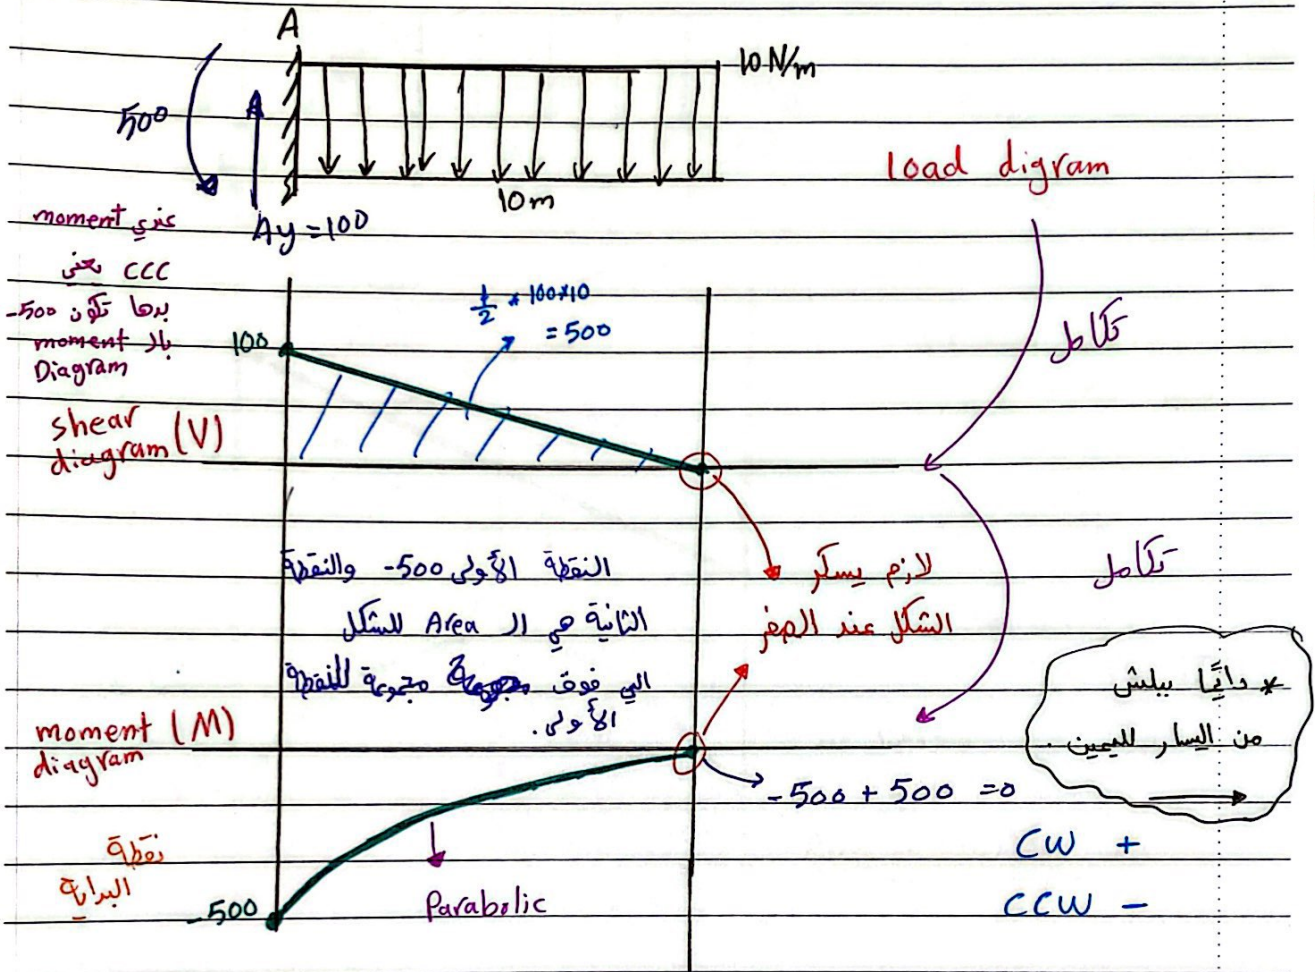 A
10 N/m
500
10 m
Ay = 100
load digram
عندي moment
CCC يعني
بدها تكون 500-
بال moment
Diagram
1/2 * 100*10
= 500
100
تكامل
shear
diagram (V)
تكامل
النقطة الأولى 500- والنقطة
الثانية هي ال Area للشكل
الي فوق مجموعة للنقطة
الأولى.
لازم يسكر
الشكل عند الصفر
* دائمًا ببلش
من اليسار لليمين.
moment (M)
diagram
-500 + 500 = 0
CW +
CCW -
نقطة
البداية
-500
Parabolic